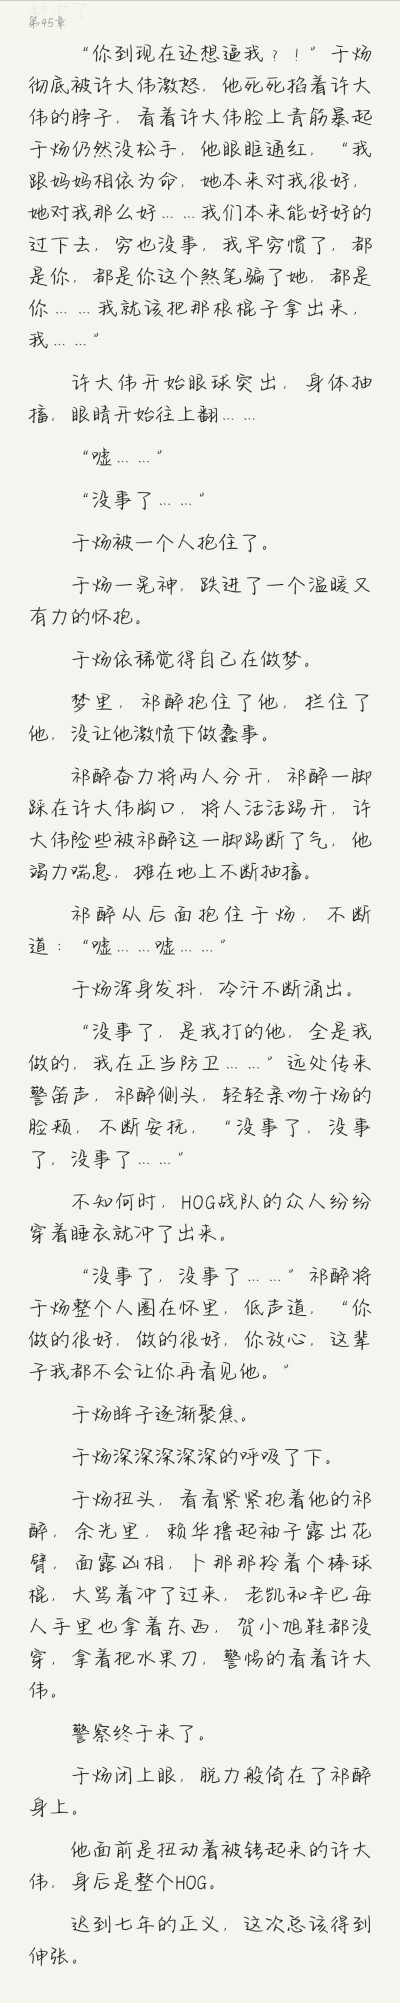 第45章
“你到现在还想逼我？！”于炀
彻底被许大伟激怒，他死死掐着许大
伟的脖子，看着许大伟脸上青筋暴起
于炀仍然没松手，他眼眶通红，“我
跟妈妈相依为命，她本来对我很好，
她对我那么好……我们本来能好好的
过下去，穷也没事，我早穷惯了，都
是你，都是你这个煞笔骗了她，都是
你……我就该把那根棍子拿出来，
我……”
许大伟开始眼球突出，身体抽
搐，眼睛开始往上翻……
“嘘……”
“没事了……”
于炀被一个人抱住了。
于炀一晃神，跌进了一个温暖又
有力的怀抱。
于炀依稀觉得自己在做梦。
梦里，祁醉抱住了他，拦住了
他，没让他激愤下做蠢事。
祁醉奋力将两人分开，祁醉一脚
踩在许大伟胸口，将人活活踢开，许
大伟险些被祁醉这一脚踢断了气，他
竭力喘息，摊在地上不断抽搐。
祁醉从后面抱住于炀，不断
道：“嘘……嘘……”
于炀浑身发抖，冷汗不断涌出。
“没事了，是我打的他，全是我
做的，我在正当防卫……”远处传来
警笛声，祁醉侧头，轻轻亲吻于炀的
脸颊，不断安抚，“没事了，没事
了，没事了……”
不知何时，HOG战队的众人纷纷
穿着睡衣就冲了出来。
“没事了，没事了……”祁醉将
于炀整个人圈在怀里，低声道，“你
做的很好，做的很好，你放心，这辈
子我都不会让你再看见他。”
于炀眸子逐渐聚焦。
于炀深深深深深的呼吸了下。
于炀扭头，看看紧紧抱着他的祁
醉，余光里，赖华撸起袖子露出花
臂，面露凶相，卜那那拎着个棒球
棍，大骂着冲了过来，老凯和辛巴每
人手里也拿着东西，贺小旭鞋都没
穿，拿着把水果刀，警惕的看着许大
伟。
警察终于来了。
于炀闭上眼，脱力般倚在了祁醉
身上。
他面前是扭动着被铐起来的许大
伟，身后是整个HOG。
迟到七年的正义，这次总该得到
伸张。